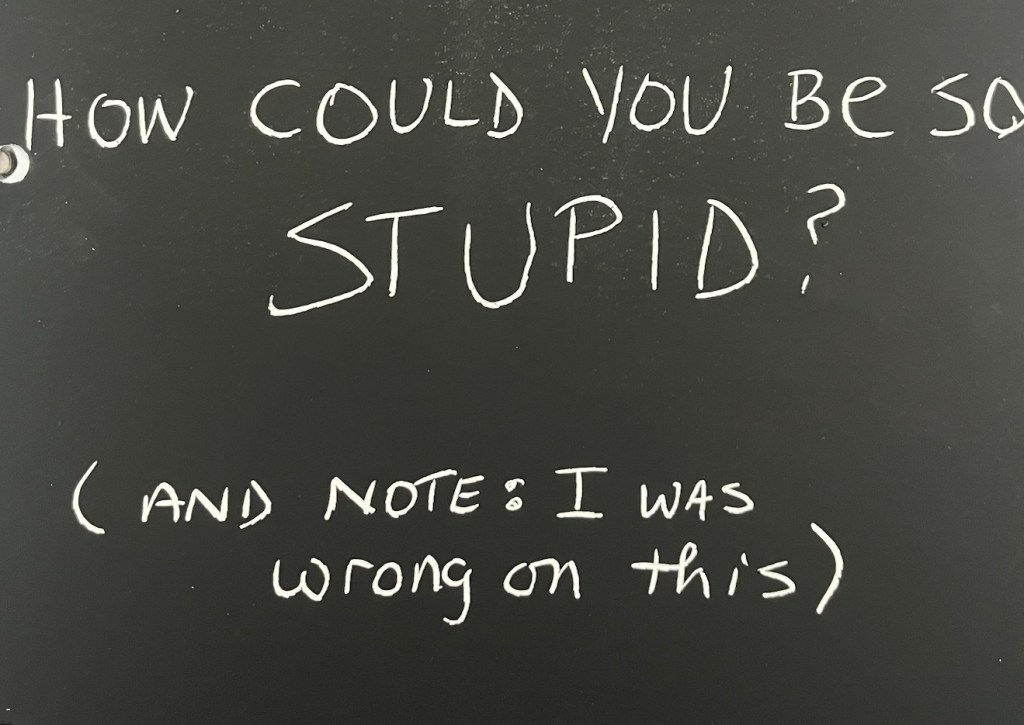 HOW COULD YOU BE SO
STUPID?
(AND NOTE: I WAS
wrong on this)